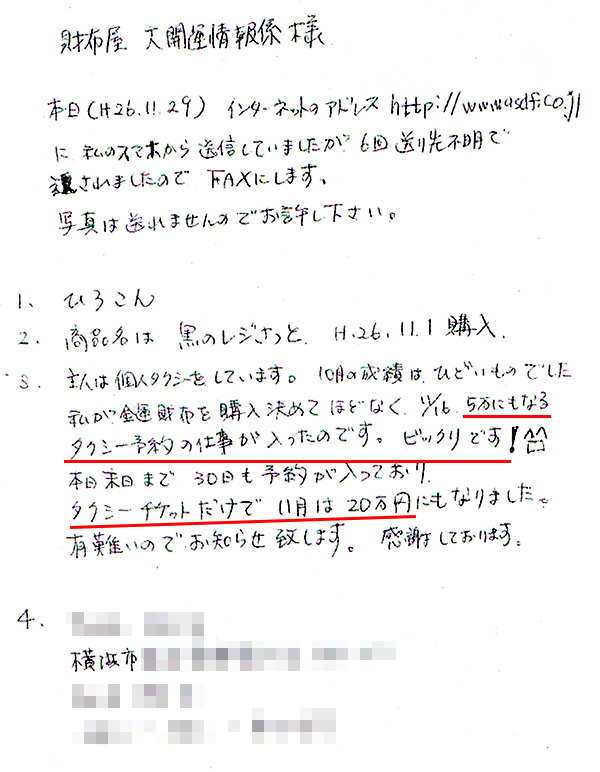 財布屋 大開運情報係様
本日(H.26.11.29) インターネットのアドレス http://www.asdf.co.j
に 私のスマホから 送信していましたが 6回送り先不明で
されましたので FAXにします。
写真は送れませんのでお許し下さい。
1. ひろこん
2. 商品名は 黒のレジさっと H.26.11.1 購入.
3. 主人は個人タクシーをしています。 10月の成績は、ひどいものでした
私が金運財布を購入決めてほどなく、11/16. 5万にもなる
タクシー予約の仕事が入ったのです。 ビックリです!
本日末日まで 30日も予約が入っており、
タクシーチケットだけで 11月は 20万円にもなりました。
有難いのでお知らせ致します。 感謝しております。
4.
横浜市